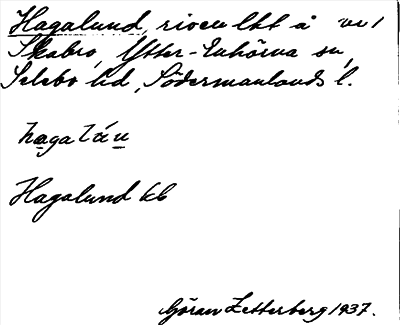 Hagalund, riven lht å nr 1
Skabro, Ytter-Enhörna sn,
Selebo hd, Södermanlands l.
hagaláu
Hagalund kb
Göran Zetterberg 1937.